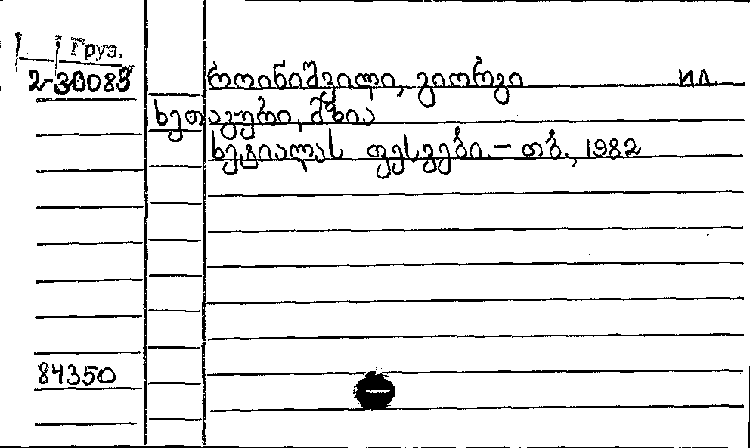 Груз.
2-30085
როინიშვილი, გიორგი ил.
ხეთაგური, მზია
ფესვები. – თბ., 1982
84350